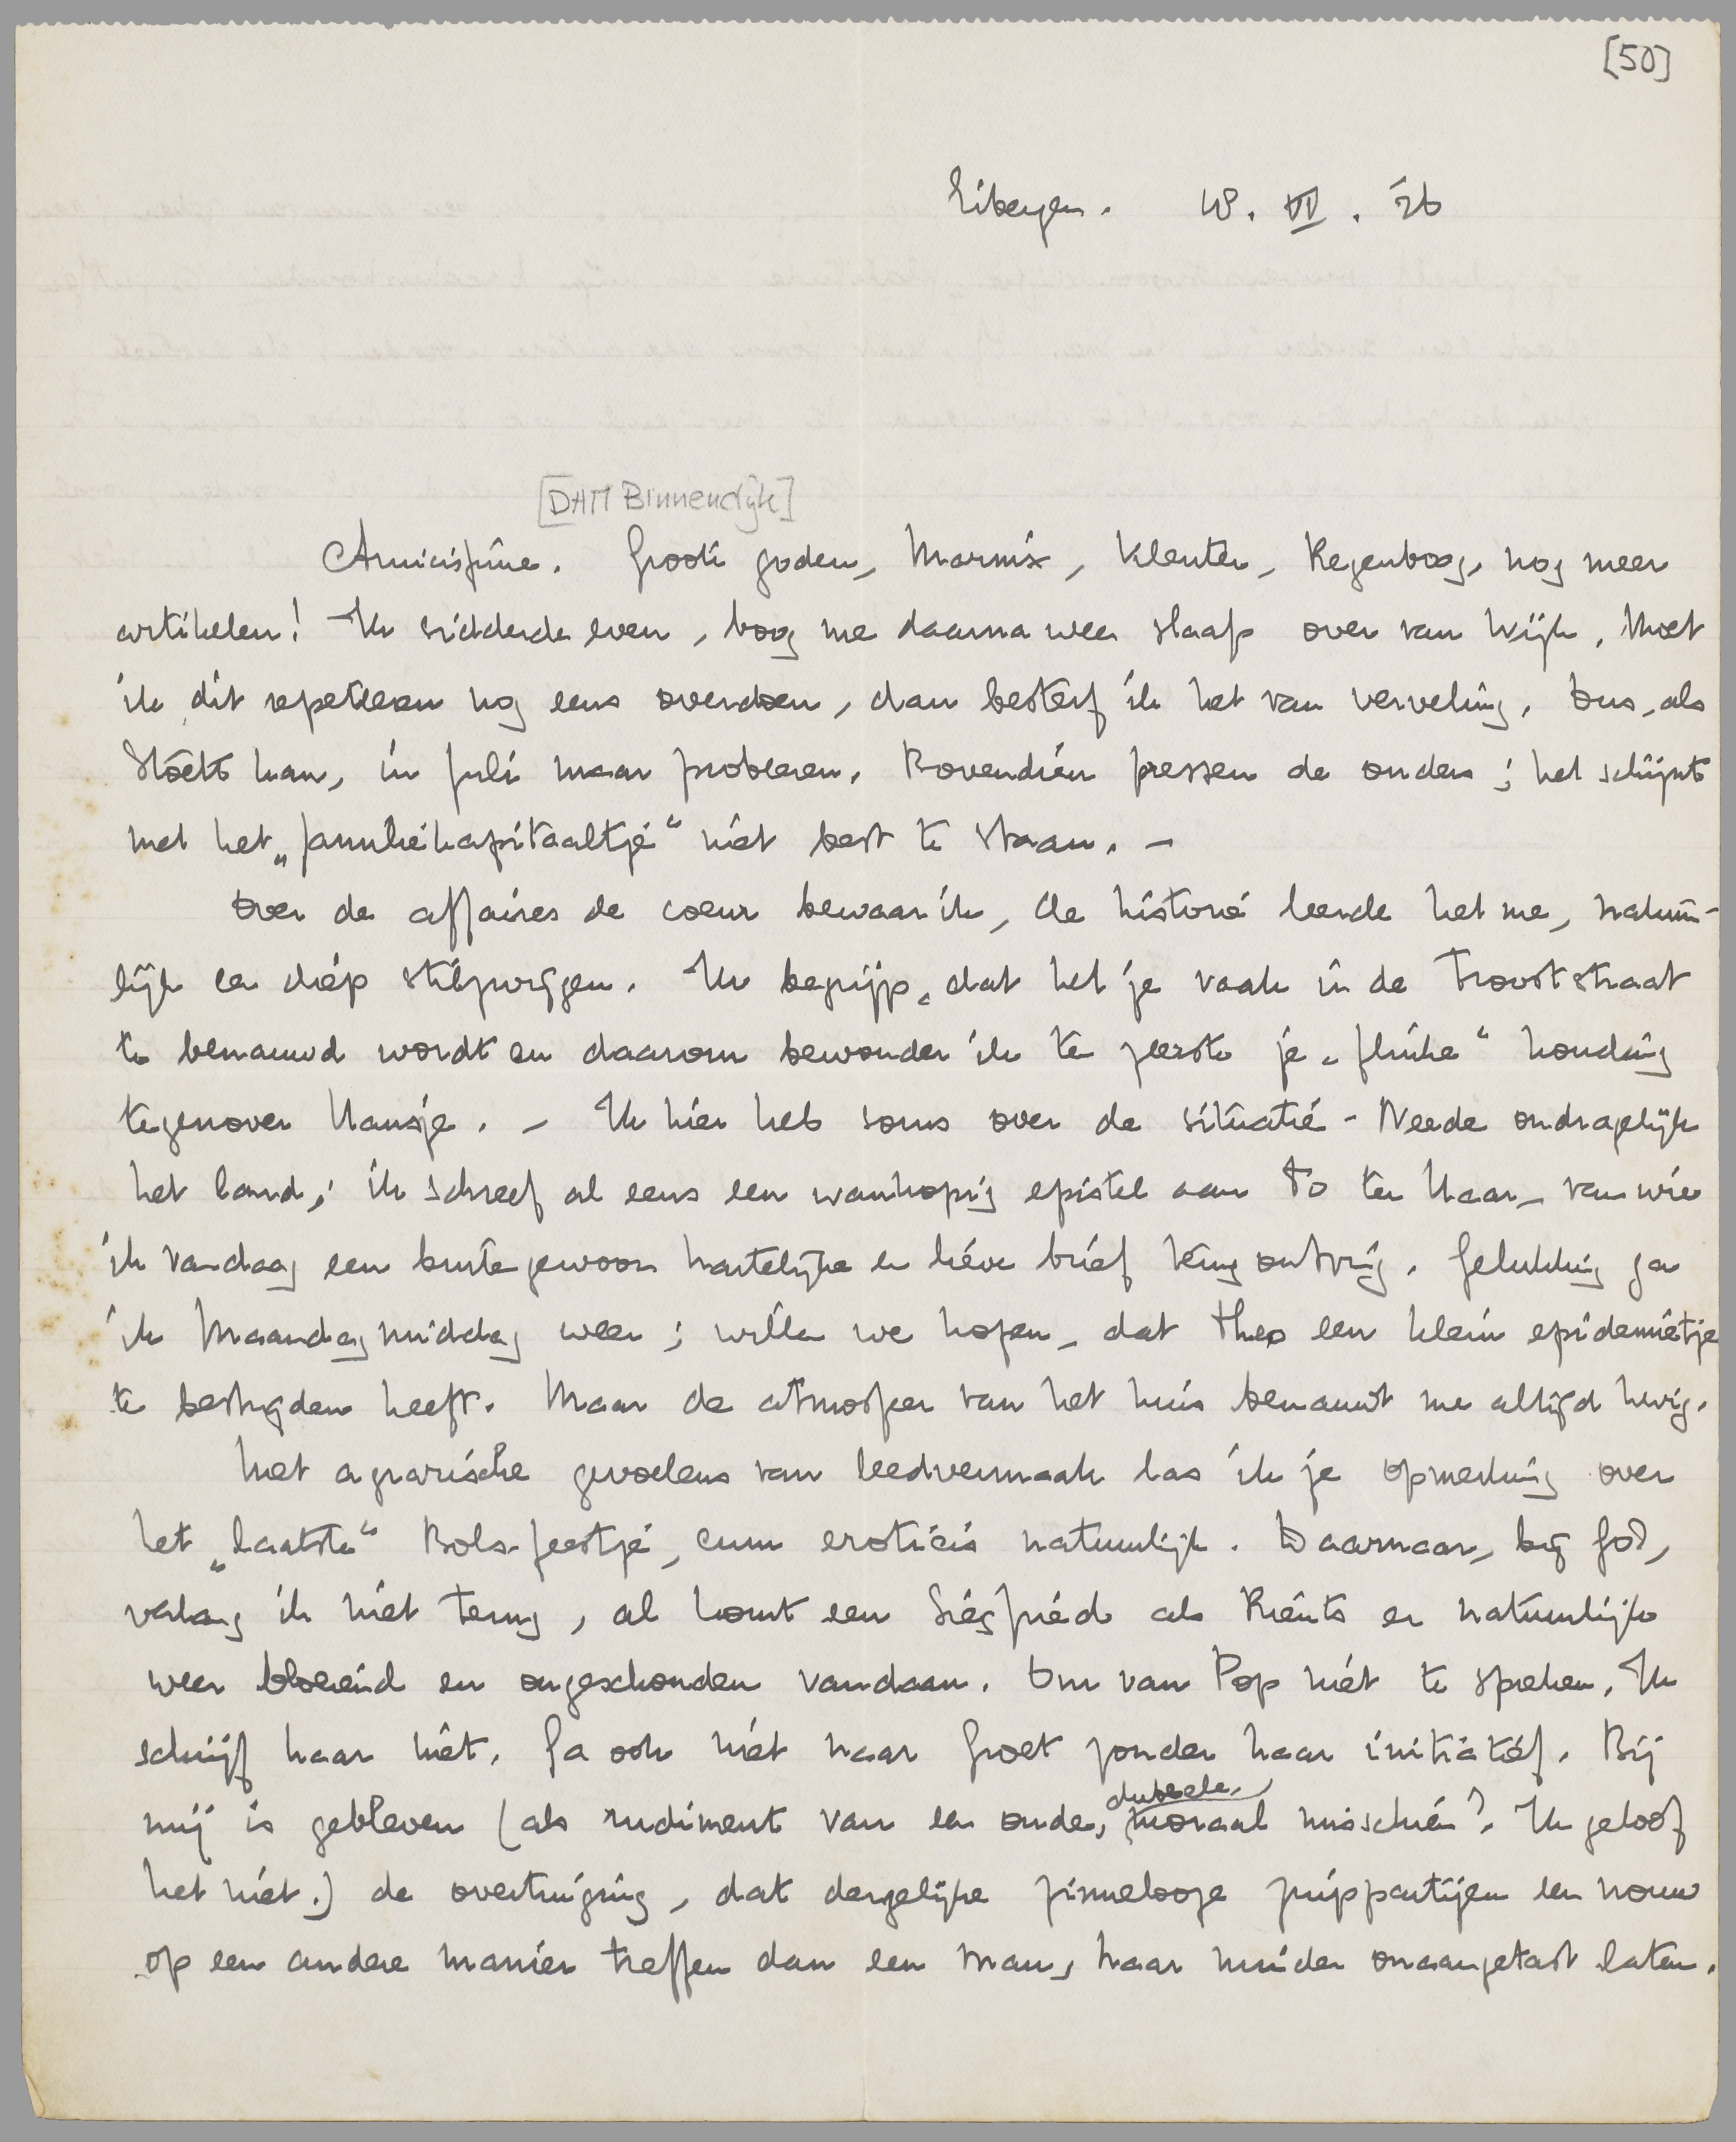 [50]
Eibergen. 18. VI. '26
[DAM Binnendijk]
Amicissime. Groote goden, Marnix, Kleuter, Regenboog, nog meer
artikelen! Ik sidderde even, boog me daarna weer slaap over van Wijk. Moet
ik dit repeteeren nog eens overdoen, dan besterf ik het van verveling. Dus, als
Stoett kan, in Juli maar probeeren. Bovendien pressen de ouders; het schijnt
met het „familiekapitaaltje“ niet best te staan. –
Over de affaires de coeur bewaar ik, de historie leerde het me, natuur-
lijk een diep stilzwijgen. Ik begrijp, dat het je vaak in de Trooststraat
te benauwd wordt en daarom bewonder ik ten zeerste je „flinke“ houding
tegenover Hansje. – Ik hier heb soms over de situatie-Neede ondragelijk
het land; ik schreef al eens een wanhopig epistel aan To ter Haar, van wie
ik vandaag een buitengewoon hartelijke en lieve brief terug ontving. Gelukkig ga
ik Maandagmiddag weer; willen we hopen, dat Theo een klein epidemietje
te bestrijden heeft. Maar de atmosfeer van het huis benauwt me altijd hevig.
Met agrarische gevoelens van leedvermaak las ik je opmerking over
het „laatste“ Bols-feestje, cum eroticis natuurlijk. Daarnaar, bij God,
verlang ik niet terug, al komt een Siegfried als Rients er natuurlijk
weer bloeiend en ongeschonden vandaan. Om van Pop niet te spreken. Ik
schrijf haar niet. Ga ook niet naar Groet zonder haar initiatief. Bij
mij is gebleven (als rudiment van een oude, dubbele moraal misschien? Ik geloof
het niet.) de overtuiging, dat dergelijke zinnelooze zuippartijen een vrouw
op een andere manier treffen dan een man, haar minder onaangetast laten.